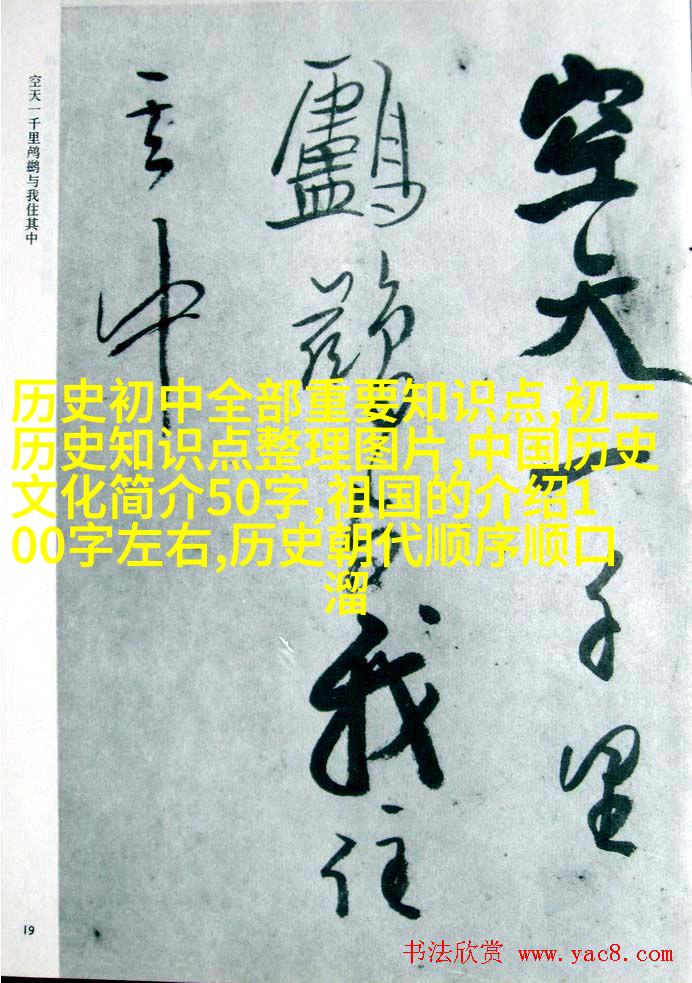 空天一千里
鸕鶿
我住
其中
空天一千里鸬鹚与我住其中
历史初中全部重要知识点,初二
历史知识点整理图片,中国历史
文化简介50字,祖国的介绍1
00字左右,历史朝代顺序顺口
溜
19
书法欣赏 www.yac8.com